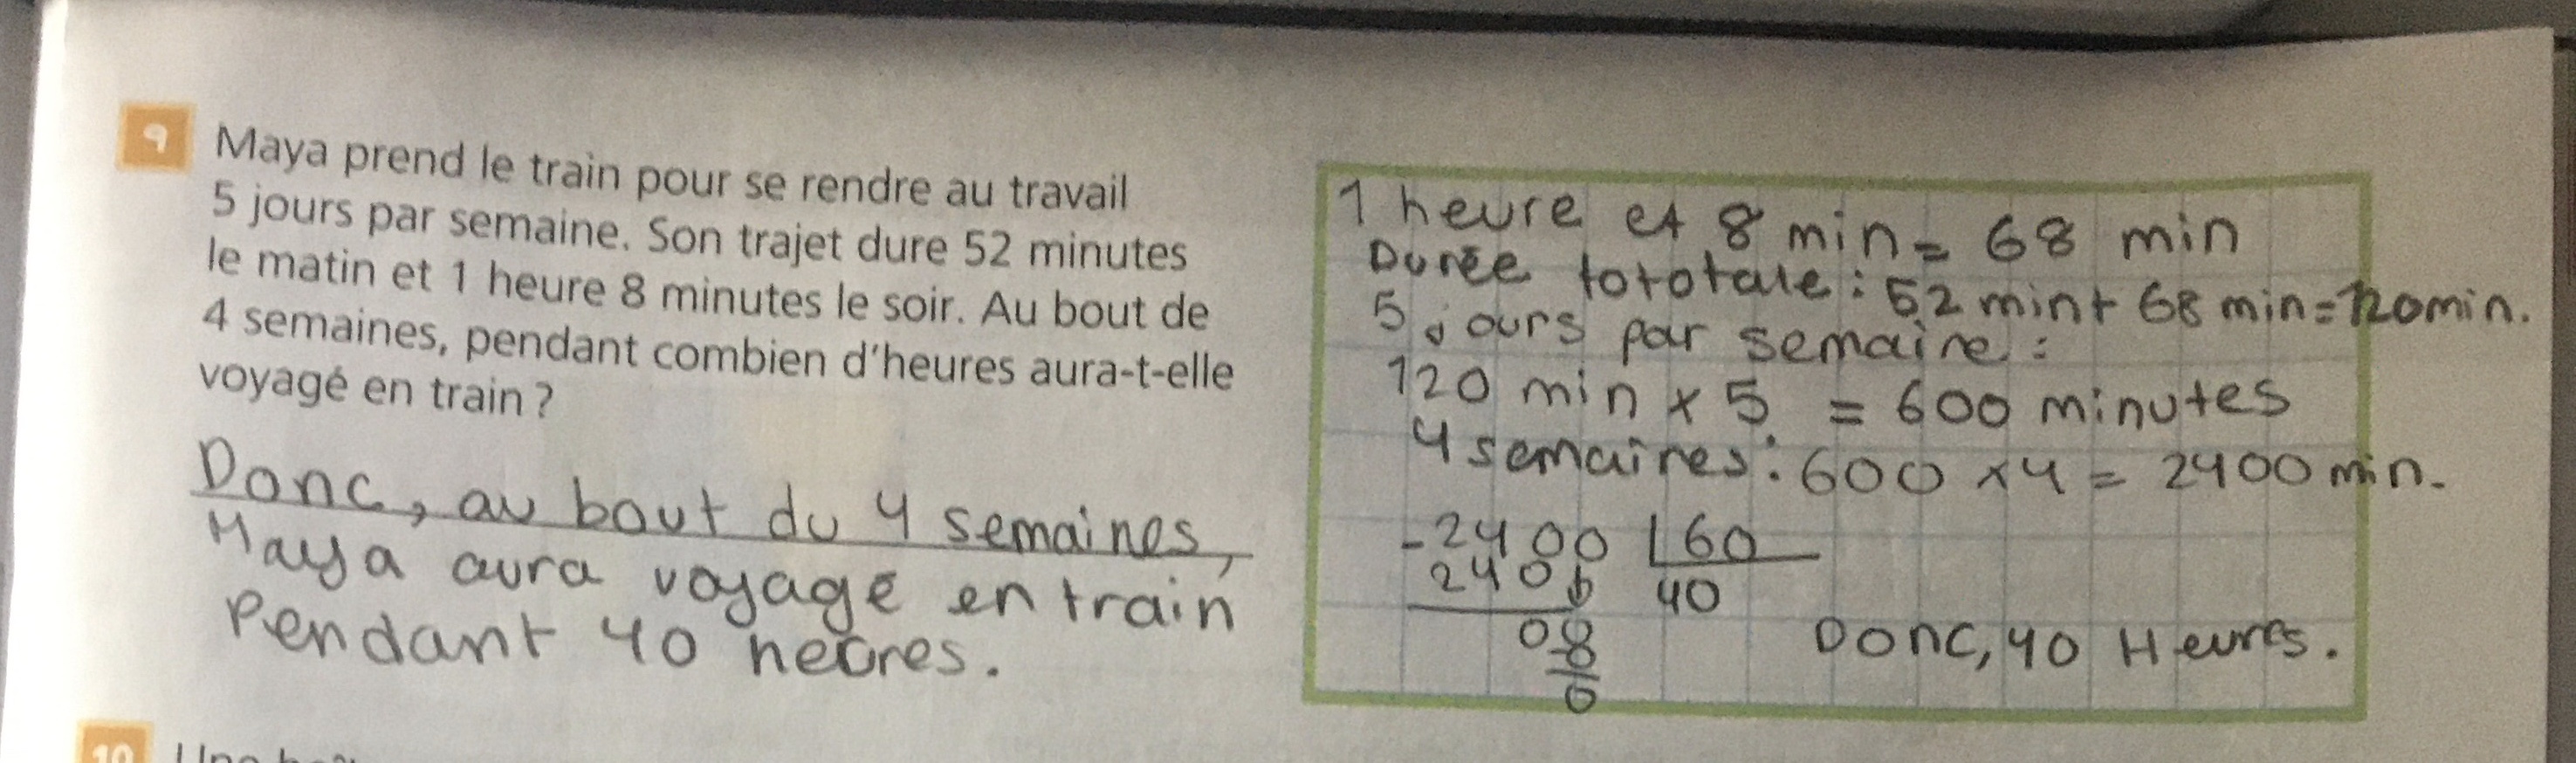 9
Maya prend le train pour se rendre au travail
5 jours par semaine. Son trajet dure 52 minutes
le matin et 1 heure 8 minutes le soir. Au bout de
4 semaines, pendant combien d'heures aura-t-elle
voyagé en train ?
Donc, au bout du 4 semaines,
Maya aura voyagé en train
Pendant 40 heures.
1 heure et 8 min = 68 min
Durée tototale : 52 min + 68 min = 120 min.
5 jours par semaine :
120 min x 5 = 600 minutes
4 semaines : 600 x 4 = 2400 min.
- 2400 60
2400 40
00
0
0
Donc, 40 Heures.
10